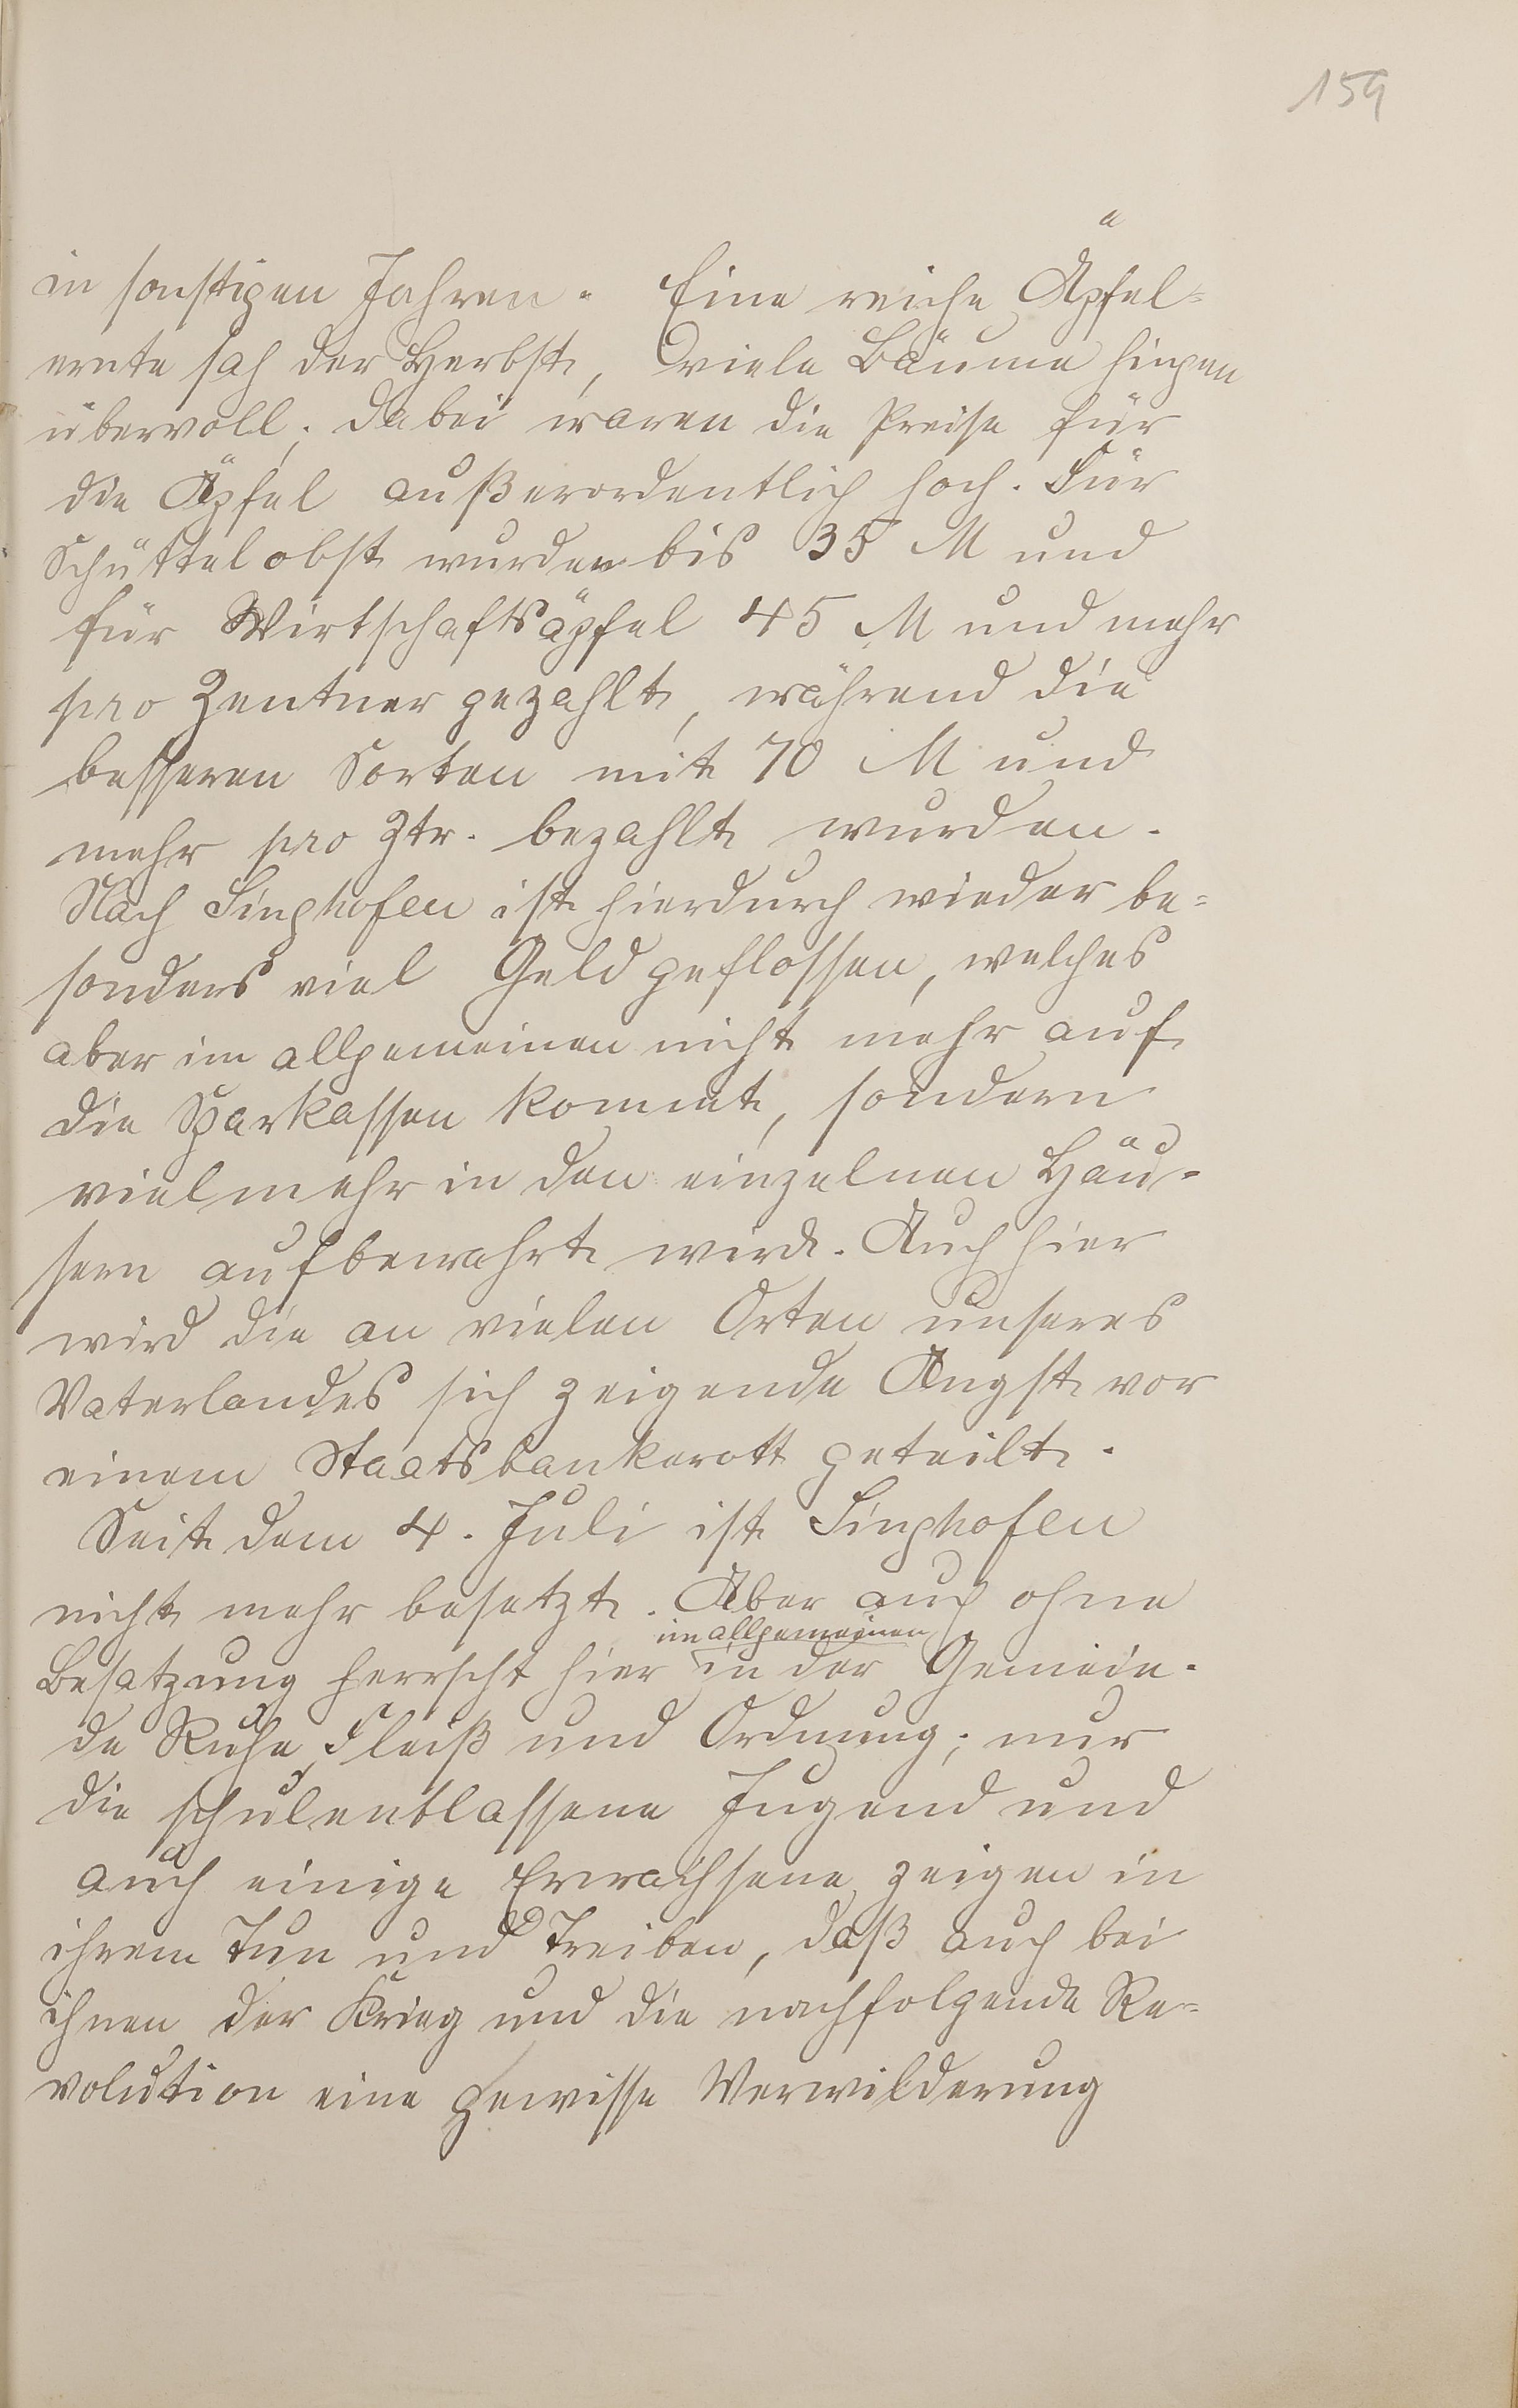 159
in sonstigen Jahren. Eine reiche Äpfel=
ernte sah der Herbst, viele Bäume hingen
übervoll; dabei waren die Preise für
die Äpfel außerordentlich hoch. Für
Schüttelobst wurden bis 35 M und
für Wirtschaftsäpfel 45 M und mehr
pro Zentner gezahlt, während die
besseren Sorten mit 70 M und
mehr pro Ztr. bezahlt wurden.
Nach Singhofen ist hierdurch wieder be=
sonders viel Geld geflossen, welches
aber im allgemeinen nicht mehr auf
die Sparkassen kommt, sondern
vielmehr in den einzelnen Häu-
sern aufbewahrt wird. Auch hier
wird die an vielen Orten unseres
Vaterlandes sich zeigende Angst vor
einem Staatsbankerott geteilt.
Seit dem 4. Juli ist Singhofen
nicht mehr besetzt. Aber auch ohne
im allgemeinen
Besatzung herrscht hier in der Gemein-
de Ruhe, Fleiß und Ordnung; nur
die schulentlassene Jugend und
auch einige Erwachsene zeigen in
ihrem Tun und Treiben, daß auch bei
ihnen der Krieg und die nachfolgende Re-
volution eine gewisse Verwilderung